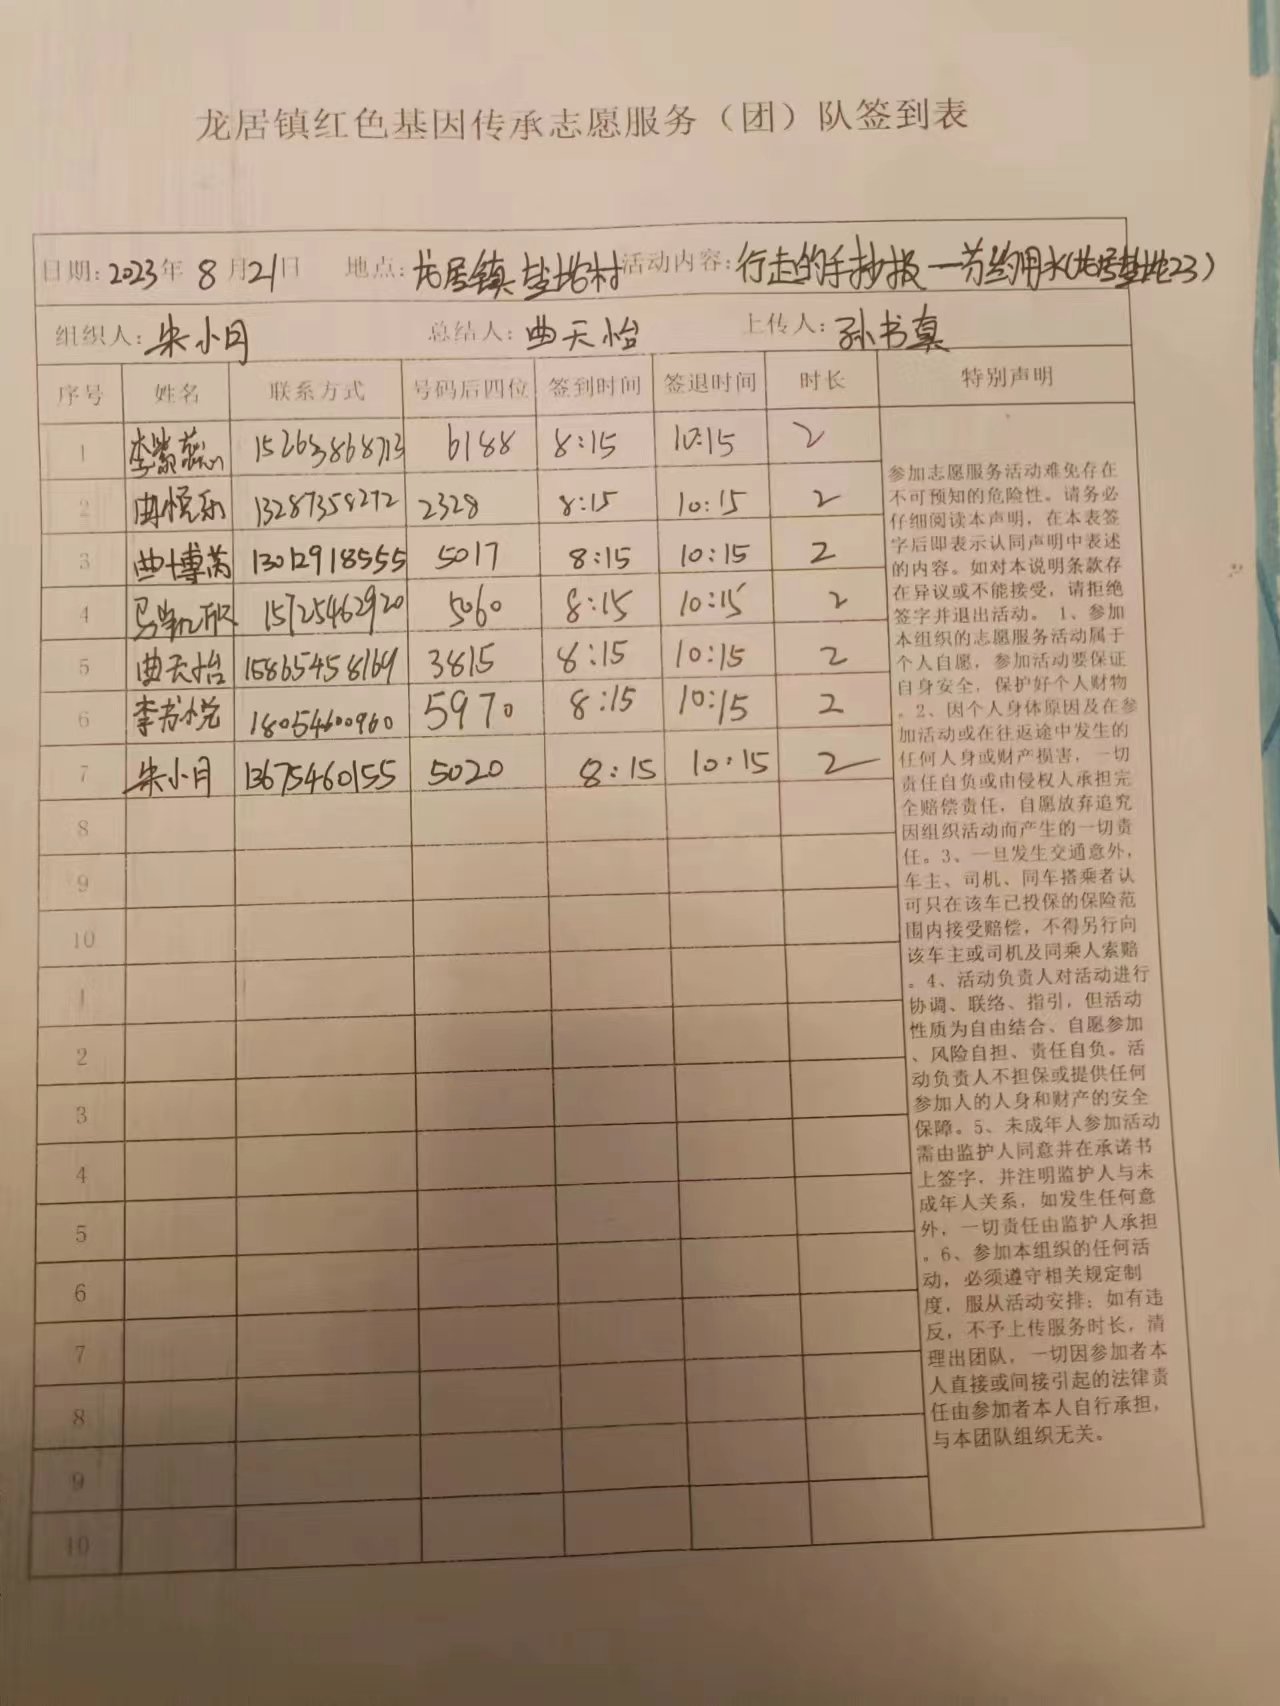 龙居镇红色基因传承志愿服务（团）队签到表
日期：2023年 8月21日 地点：龙居镇盐垛村 活动内容：行走的手抄报—节约用水(龙居盐垛23)
组织人：朱小月 总结人：曲天怡 上传人：孙书真
序号 姓名 联系方式 号码后四位 签到时间 签退时间 时长 特别声明
1 李紫蕊 15263868713 6188 8:15 10:15 2
2 曲悦乐 13287358272 2328 8:15 10:15 2
3 曲博芮 13012918555 5017 8:15 10:15 2
4 15725462920 5060 8:15 10:15 2
5 曲天怡 15865458169 3815 8:15 10:15 2
6 李书悦 18054600960 5970 8:15 10:15 2
7 朱小月 13675460155 5020 8:15 10:15 2
8
9
10
1
2
3
4
5
6
7
8
9
10
参加志愿服务活动难免存在
不可预知的危险性。请务必
仔细阅读本声明，在本表签
字后即表示认同声明中表述
的内容。如对本说明条款存
在异议或不能接受，请拒绝
签字并退出活动。 1、参加
本组织的志愿服务活动属于
个人自愿，参加活动要保证
自身安全，保护好个人财物
。2、因个人身体原因及在参
加活动或在往返途中发生的
任何人身或财产损害，一切
责任自负或由侵权人承担完
全赔偿责任，自愿放弃追究
因组织活动而产生的一切责
任。3、一旦发生交通意外，
车主、司机、同车搭乘者认
可只在该车已投保的保险范
围内接受赔偿，不得另行向
该车主或司机及同乘人索赔
。4、活动负责人对活动进行
协调、联络、指引，但活动
性质为自由结合、自愿参加
、风险自担、责任自负。活
动负责人不担保或提供任何
参加人的人身和财产的安全
保障。5、未成年人参加活动
需由监护人同意并在承诺书
上签字，并注明监护人与未
成年人关系，如发生任何意
外，一切责任由监护人承担
。6、参加本组织的任何活
动，必须遵守相关规定制
度，服从活动安排；如有违
反，不予上传服务时长，清
理出团队，一切因参加者本
人直接或间接引起的法律责
任由参加者本人自行承担，
与本团队组织无关。